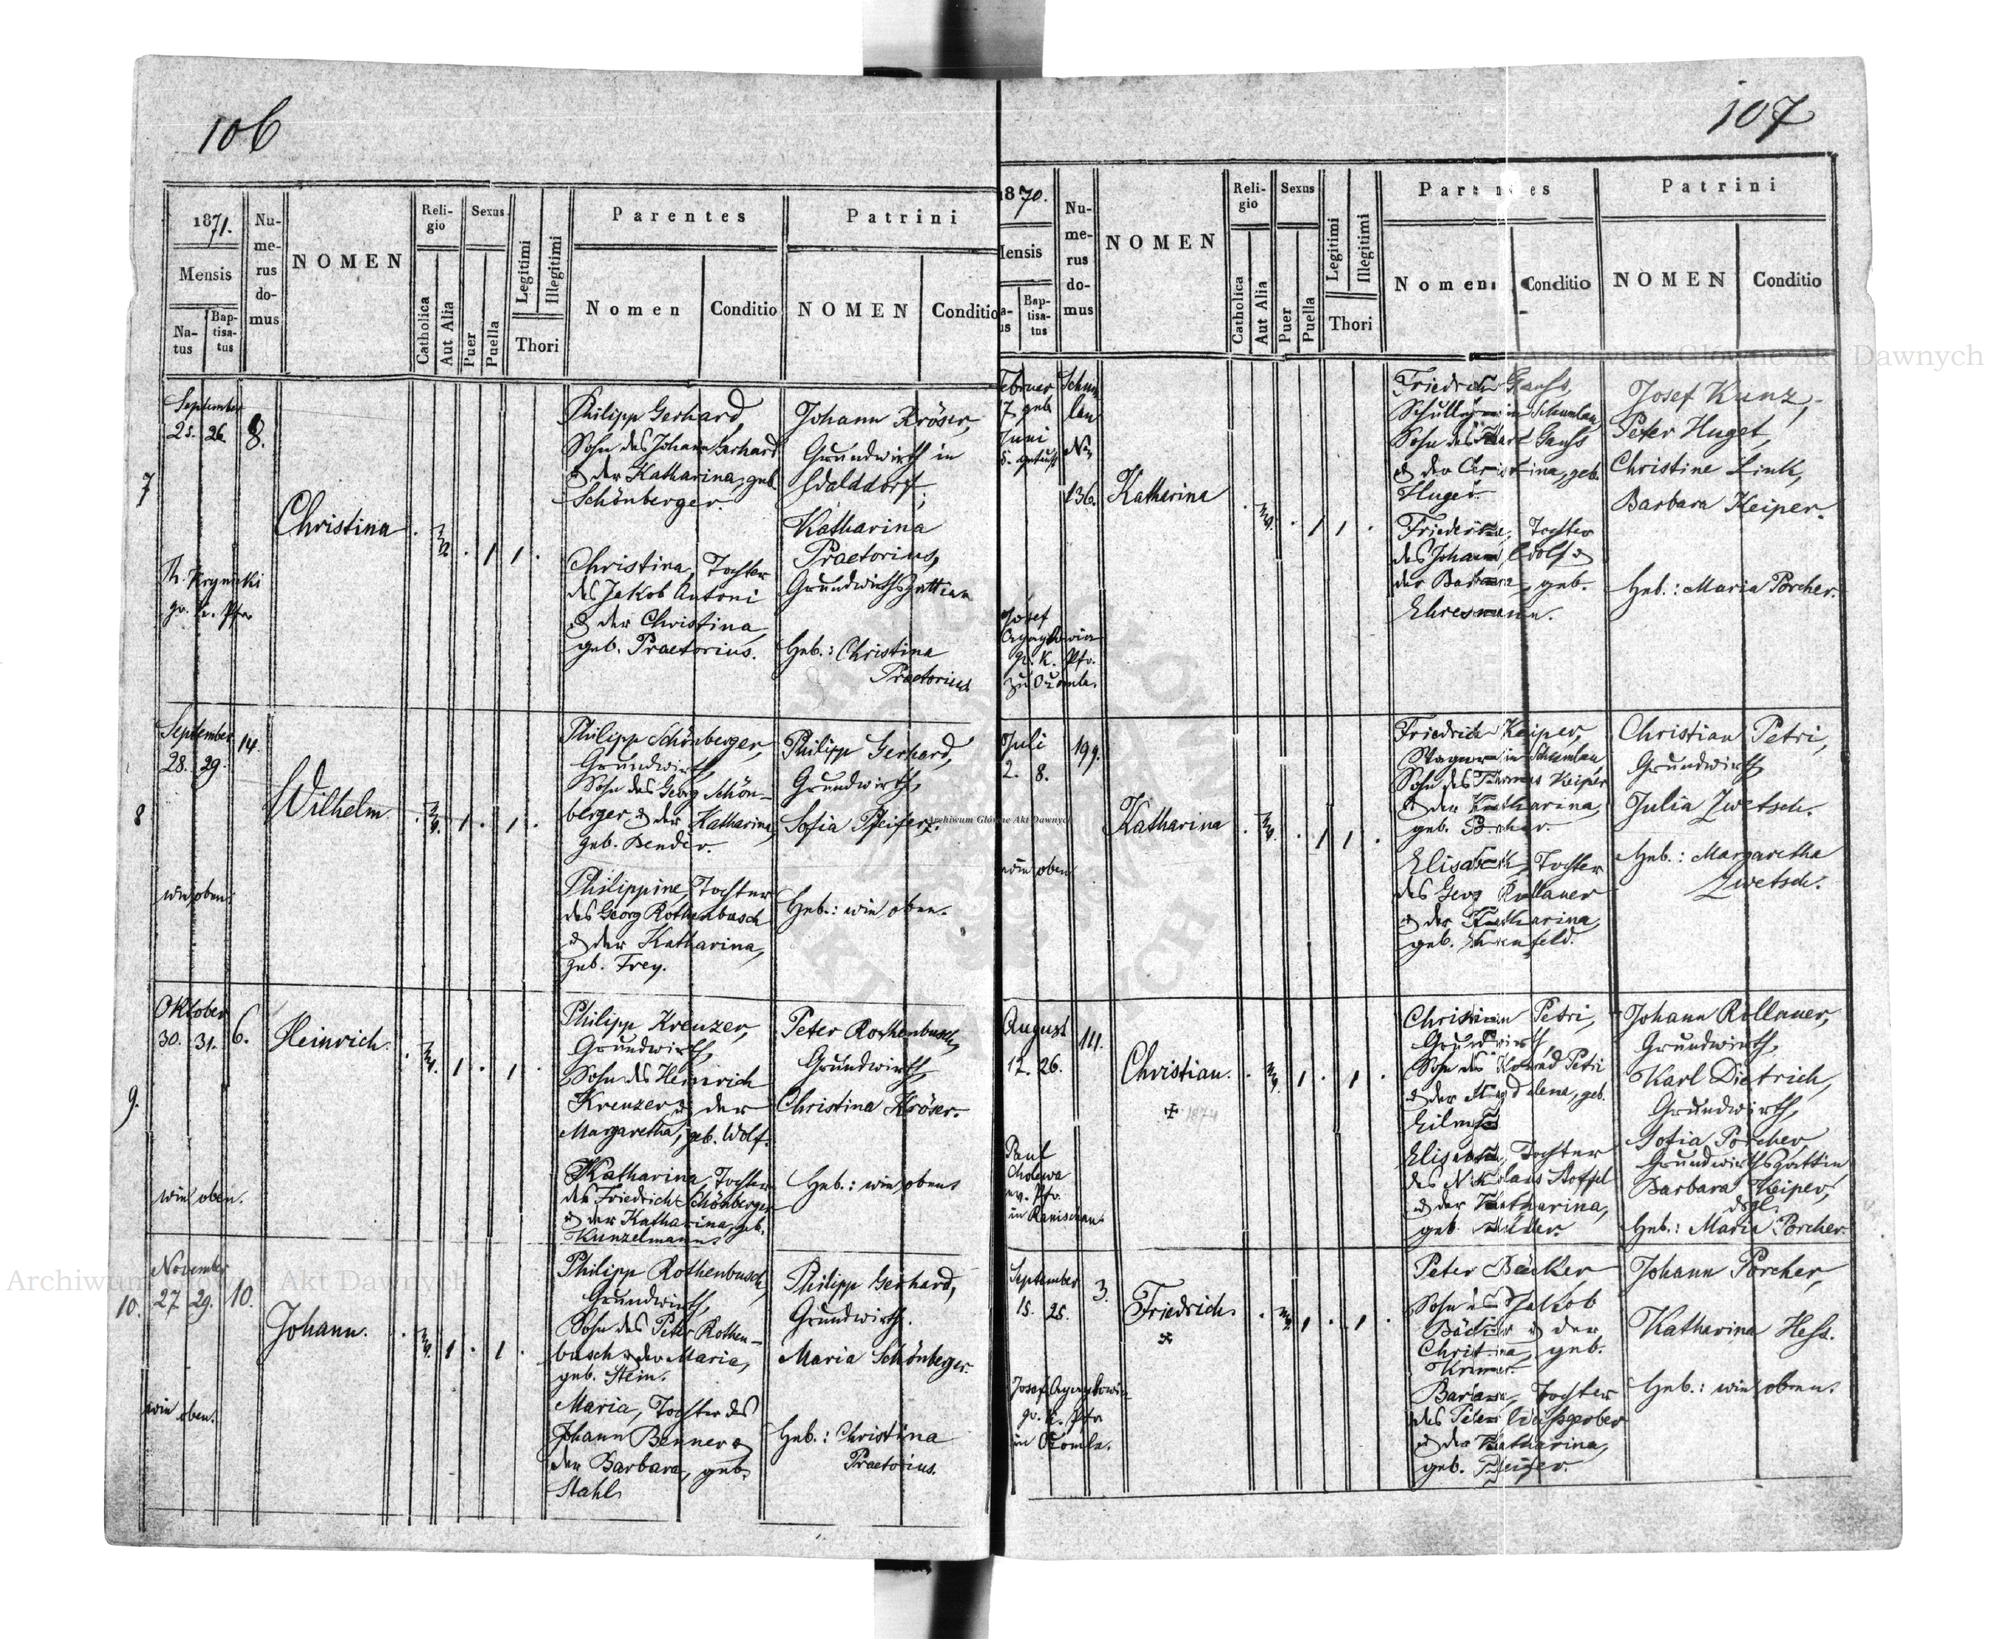 106
1871.
Mensis
Na-
tus
Bap-
tisa-
tus
Nu-
me-
rus
do-
mus
NOMEN
Reli-
gio
Catholica
Aut Alia
Sexus
Puer
Puella
Legitimi
Illegitimi
Thori
Parentes
Nomen
Conditio
Patrini
NOMEN
Conditio
7
September
25. 26.
8.
Christina
Philipp Gerhard,
Sohn des Johann Gerhard
& der Katharina, geb.
Schönberger.
Christina, Tochter
des Jakob Antoni
& der Christina,
geb. Praetorius.
Johann Kröser,
Grundwirth in
Katharina
Praetorius,
Grundwirthsgattin
Heb.: Christina
Praetorius
8
September
28. 29.
14.
wie oben.
Wilhelm
Philipp Schönberger,
Grundwirth,
Sohn des Georg Schön-
berger & der Katharina,
geb. Bender.
Philippine, Tochter
des Georg Rothenbusch
& der Katharina,
geb. Frey.
Philipp Gerhard,
Grundwirth,
Sofia Pfeifer.
Heb.: wie oben.
9.
Oktober
30. 31.
6.
wie oben.
Heinrich.
Philipp Kreuzer,
Grundwirth,
Sohn des Heinrich
Kreuzer & der
Margaretha, geb. Wolf.
Katharina, Tochter
des Friedrich Schönberger
& der Katharina, geb.
Kunzelmann.
Peter Rothenbusch,
Grundwirth,
Christina Kröser.
Heb.: wie oben.
10.
November
27. 29.
10.
wie oben.
Johann.
Philipp Rothenbusch,
Grundwirth,
Sohn des Peter Rothen-
busch & der Maria,
geb. Stein.
Maria, Tochter des
Johann Benner &
der Barbara, geb.
Stahl.
Philipp Gerhard,
Grundwirth.
Maria Schönberger.
Heb.: Christina
Praetorius.
107
1870.
Mensis
Bap-
tisa-
tus
Nu-
me-
rus
do-
mus
NOMEN
Reli-
gio
Catholica
Aut Alia
Sexus
Puer
Puella
Legitimi
Illegitimi
Thori
Parentes
Nomen
Conditio
Patrini
NOMEN
Conditio
Februar
7. geb.
Juni
5. getauft
136.
Josef
gr. k. Pfr.
Katharina
Friedrich Gauss,
Sohn des Karl Gauss
& der Christina, geb.
Huget.
Friederika, Tochter
des Johann Wolf &
der Barbara, geb.
Ehresmann.
Josef Kunz,
Peter Huget,
Christine Link,
Barbara Keiper.
Heb.: Maria Porcher.
Juli
2. 8.
199.
wie oben
Katharina
Friedrich Keiper,
Sohn des Thomas Keiper
& der Katharina,
geb. Porcher.
Elisabeth, Tochter
des Georg Rollauer
& der Katharina,
geb.
Christian Petri,
Grundwirth
Julia Zwetsch.
Heb.: Margaretha
Zwetsch.
August
17. 26.
Paul
Cholewa
ev. Pfr.
in Ranischau.
Christian.
✠ 1874
Christian Petri,
Grundwirth,
Sohn des Konrad Petri
& der Magdalena, geb.
Elisabeth, Tochter
des Nikolaus Stoffel
& der Katharina,
geb. Müller.
Johann Rollauer,
Grundwirth,
Karl Dietrich,
Grundwirth,
Sofia Porcher,
Grundwirthsgattin
Barbara Keiper,
dsgl.
Heb.: Maria Porcher.
September
15. 25.
3.
Josef
gr. k. Pfr
Friedrich.
✠
Peter Bäcker
Sohn des Jakob
Bäcker & der
Christina, geb.
Barbara, Tochter
des Peter Weissgerber
& der Katharina,
geb. Pfeifer.
Johann Porcher,
Katharina Hess.
Heb.: wie oben.
Archiwum Główne Akt Dawnych
Archiwum Główne Akt Dawnych
Archiwum Główne Akt Dawnych